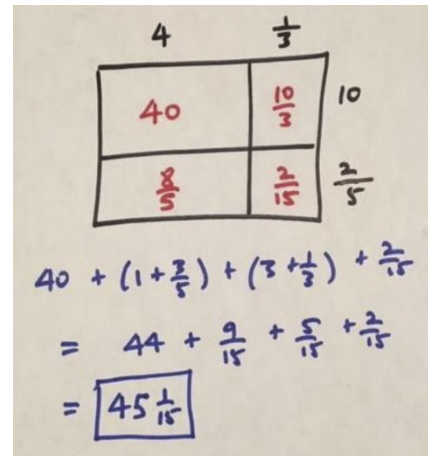 4 1/3
40 10/3 10
8/5 2/15 2/5
40 + (1 + 3/5) + (3 + 1/3) + 2/15
= 44 + 9/15 + 5/15 + 2/15
= 45 1/15